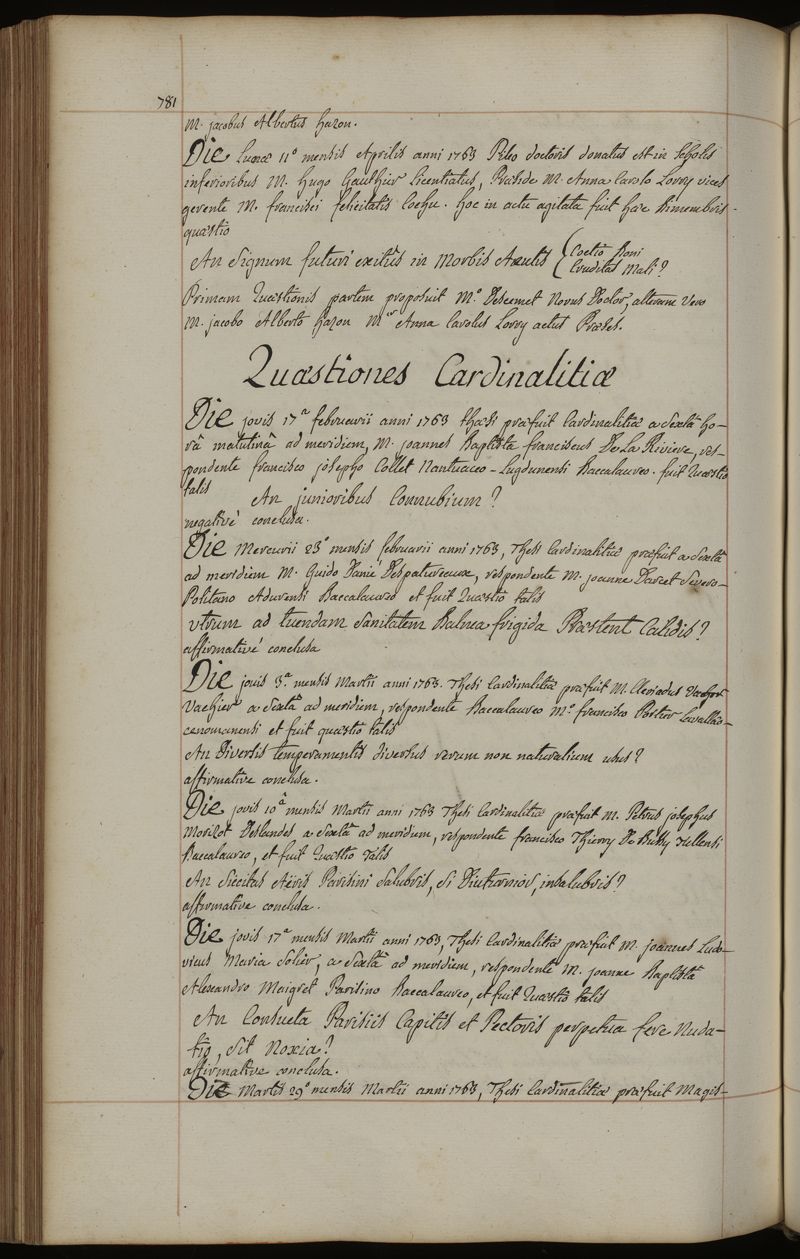 781
M. jacobus Albertus hazon.
Die Lunæ 11° mensis Aprilis anni 1763 Pileo doctoris donatus est in Scholis
inferioribus M. Hugo Gaulthier Licentiatus, Præside M. Anna Carolo Lorry vices
gerente M. francisci felicitatis Cochu. hoc in actu agitata fuit hæc Bimembris
quæstio
An Signum futuri exitûs in Morbis Acutis { Coctio Boni
Cruditas Mali ?
Primam Quæstionis partem proposuit M.° Descemet Novus Doctor, alteram Vero
M. jacobo Alberto hazon M.er Anna Carolus Lorry actus Præses.
Quæstiones Cardinalitiæ
Die jovis 17.a februarii anni 1763 thesi præfuit Cardinalitiæ a sextâ ho-
râ matutinâ ad meridiem, M. joannes Baptista franciscus De La Riviere, res-
pondente francisco josepho Collet Nantuaceo-Lugdunensi Baccalaureo. fuit Quæstio
talis An junioribus Connubium ?
negativé conclusa.
Die Mercurii 23° mensis februarii anni 1763, Thesi Cardinalitiæ præfuit a Sextâ
ad meridiem M. Guido Danié Despatureaux, respondente M. joanne Darcet Severo-
Politano Adurensi Baccalaureo et fuit Quæstio talis
Utrum ad tuendam Sanitatem Balnea frigida Præstent Calidis ?
affirmativé conclusa
Die jovis 3.a mensis Martii anni 1763. Thesi Cardinalitiæ præfuit M. Claviodus
Vachier a Sextâ ad meridiem, respondente Baccalaureo M.° francisco Portier Lavallæo-
cenomanensi et fuit quæstio talis
An Diversis temperamentis diversus rerum non naturalium usus ?
affirmative conclusa.
Die jovis 10.â mensis Martii anni 1763 Thesi Cardinalitiæ præfuit M. Petrus josephus
Morizot Deslandes a Sextâ ad meridiem, respondente francisco Thierry De Bussy Tullensi
Baccalaureo, et fuit Quæstio Talis
An Siccitas Aëris Parisini Salubris, Si Diuturnior, insalubris ?
affirmative conclusa.
Die jovis 17.a mensis Martii anni 1763, Thesi Cardinalitiæ præfuit M. joannes Ludo-
vicus Maria Solier, a Sextâ ad meridiem, respondente M. joanne Baptistâ
Alexandro Maigret Parisino Baccalaureo, et fuit Quæstio talis
An Consueta Parisiis Capitis et Pectoris perpetua fere Nuda-
tio, Sit Noxia ?
affirmative conclusa.
Die Martis 29° mensis Martii anni 1763, Thesi Cardinalitiæ præfuit Magis-